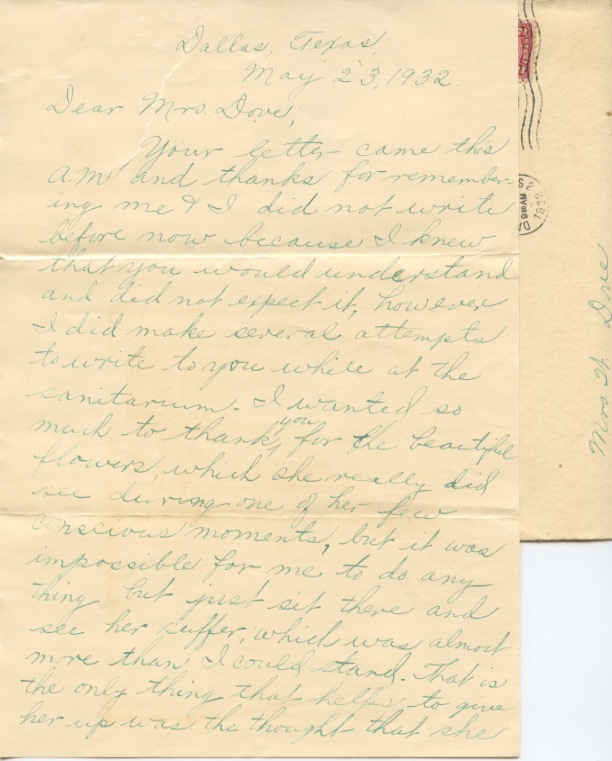 Dallas, Texas,
May 23, 1932.
Dear Mrs. Dove;
Your letter came this
A.M. and thanks for remember-
ing me & I did not write
before now because I knew
that you would understand
and did not expect it, however
I did make several attempts
to write to you while at the
sanitarium. I wanted so
much to thank you for the beautiful
flowers, which she really did
see during one of her few
conscious moments, but it was
impossible for me to do any
thing but just sit there and
see her suffer, which was almost
more than I could stand. That is
the only thing that helps, to give
her up was the thought that she
1932
Mrs Dove